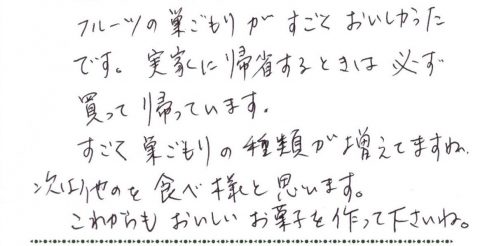 フルーツの巣ごもりがすごくおいしかった
です。実家に帰省するときは必ず
買って帰っています。
すごく巣ごもりの種類が増えてますね、
次は他のを食べ様と思います。
これからもおいしいお菓子を作って下さいね。